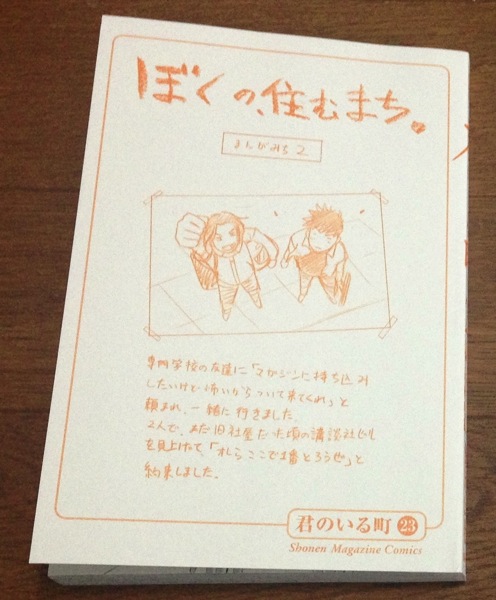 ぼくの、住むまち。
まんがみち2
専門学校の友達に「マガジンに持ち込み
したいけど怖いからついて来てくれ」と
頼まれ、一緒に行きました。
2人で、まだ旧社屋だった頃の講談社ビル
を見上げて、「オレらここで1番とろうぜ」と
約束しました。
君のいる町 23
Shonen Magazine Comics